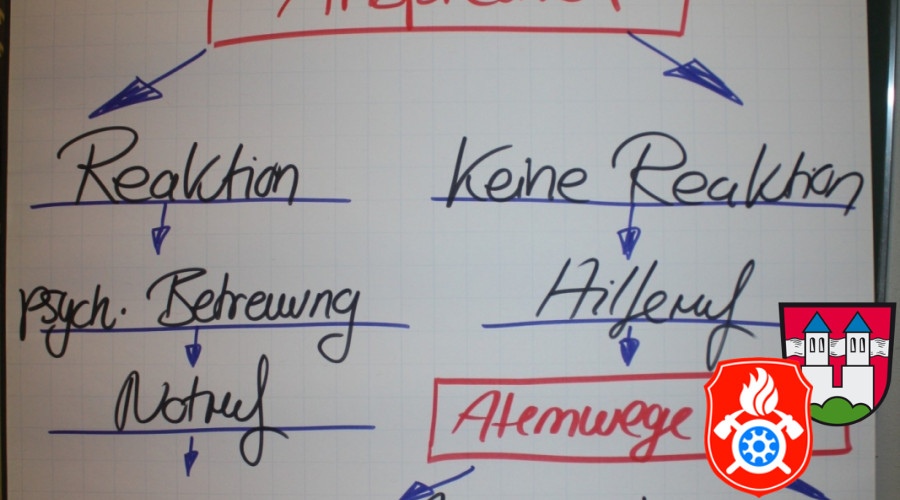 Reaktion
Keine Reaktion
psych. Betreuung
Hilferuf
Notruf
Atemwege